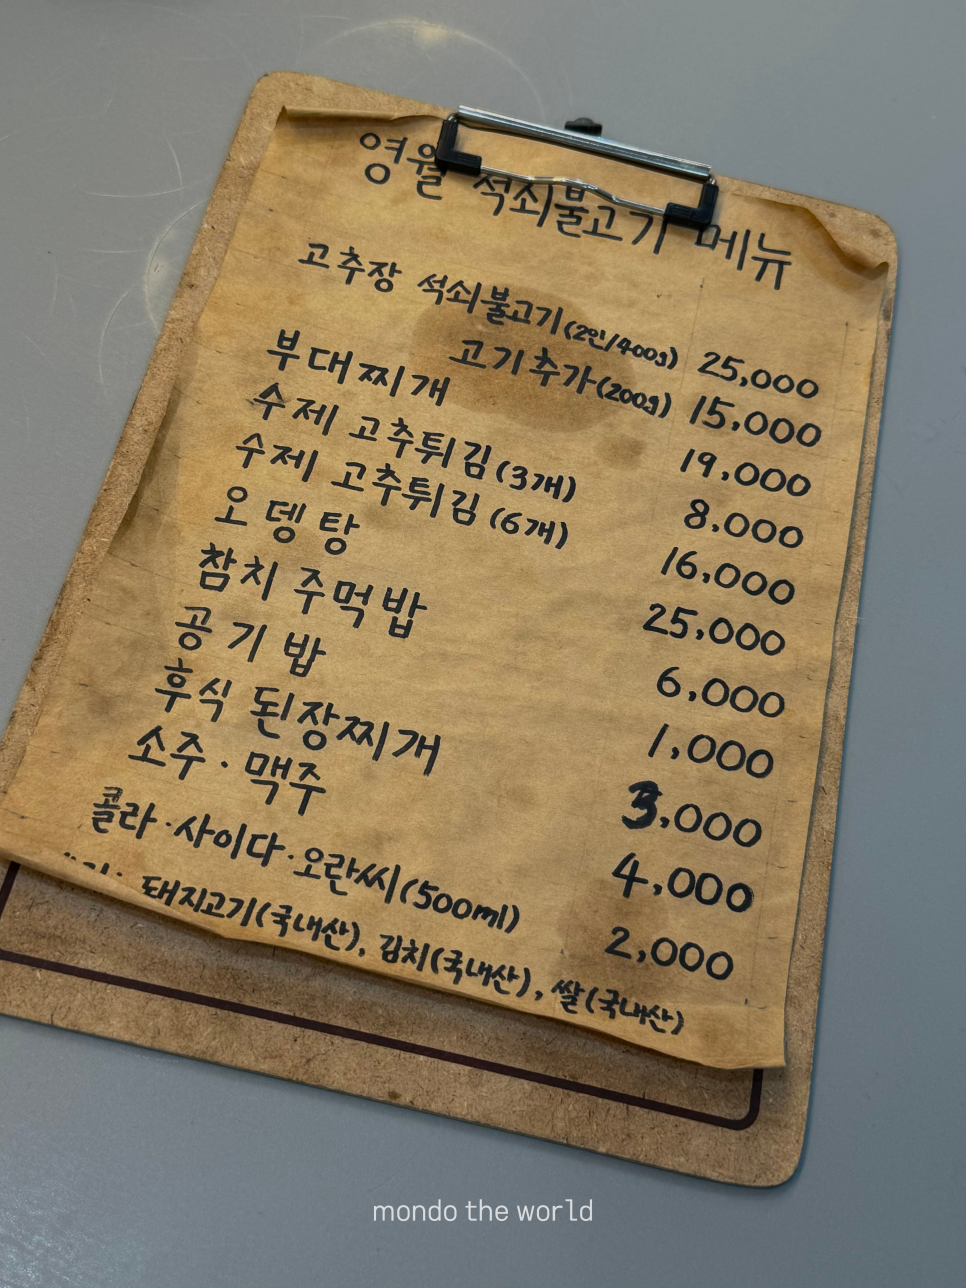 영월 석쇠불고기 메뉴
고추장 석쇠불고기(2인/400g) 25,000
고기추가(200g) 15,000
부대찌개 19,000
수제 고추튀김(3개) 8.000
수제 고추튀김(6개) 16,000
오뎅탕 25,000
참치 주먹밥 6,000
공기밥 1,000
후식 된장찌개 3,000
소주·맥주 4,000
콜라·사이다·오란씨(500ml) 2,000
돼지고기(국내산), 김치(국내산), 쌀(국내산)
mondo the world